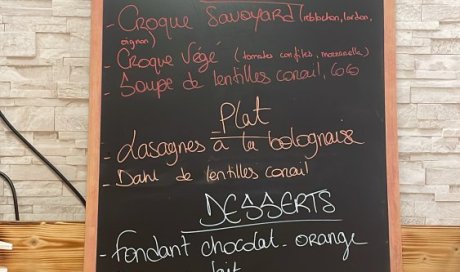 - Croque Savoyard (reblochon, lardon,
oignon)
- Croque Végé (tomates confites, mozzarella)
- Soupe de lentilles corail, coco
Plat
- Lasagnes à la bolognaise
- Dahl de lentilles corail
DESSERTS
- fondant chocolat - orange
lait